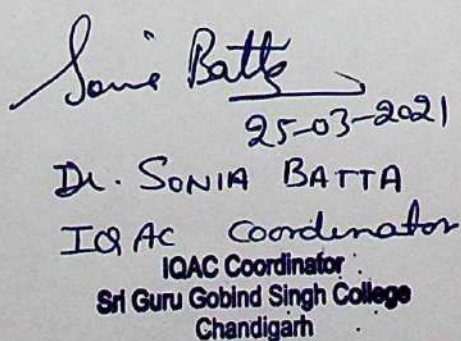 Sonia Batta
25-03-2021
Dr. SONIA BATTA
IQAC Coordinator
IQAC Coordinator
Sri Guru Gobind Singh College
Chandigarh